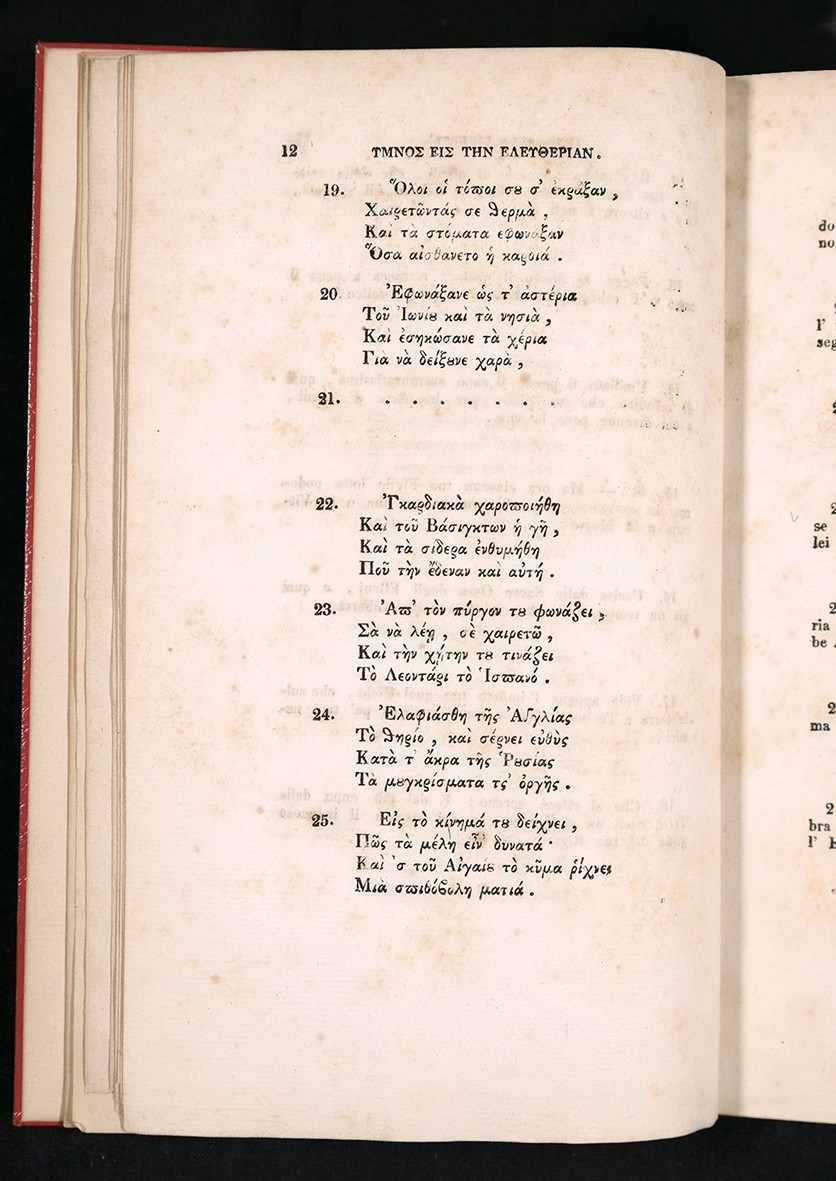 12 ΥΜΝΟΣ ΕΙΣ ΤΗΝ ΕΛΕΥΘΕΡΙΑΝ.
19. Ὅλοι οἱ τόποι σȣ σ' ἐκράξαν,
Χαιρετῶντάς σε θερμὰ,
Καὶ τὰ στόματα εφωναξαν
Ὅσα αἰσθανετο ἡ καρδιά.
20 Ἐφωνάξανε ὡς τ' ἀστέρια
Τοῦ Ἰωνίȣ καὶ τὰ νησιὰ,
Καὶ ἐσηκώσανε τὰ χέρια
Γιὰ νὰ δείξȣνε χαρὰ,
21. . . . . . . .
22. Ἐγκαρδιακὰ χαροποιήθη
Καὶ τοῦ Βάσιγκτων ἡ γῆ,
Καὶ τὰ σίδερα ἐνθυμήθη
Ποῦ τὴν ἔδεναν καὶ αὐτή.
23. Ἀπ' τὸν πύργον τȣ φωνάζει,
Σὰ νὰ λέῃ, σὲ χαιρετῶ,
Καὶ τὴν χήτην τȣ τινάζει
Τὸ Λεοντάρι τὸ Ἱσπανό.
24. Ἐλαφιάσθη τῆς Ἀγγλίας
Τὸ θηρίο, καὶ σέρνει εὐθὺς
Κατὰ τ' ἄκρα τῆς Ῥȣσίας
Τὰ μȣγκρίσματα τς' ὀργῆς.
25. Εἰς τὸ κίνημά τȣ δείχνει,
Πῶς τὰ μέλη εἶν' δυνατά·
Καὶ 'ς τοῦ Αἰγαίȣ τὸ κῦμα ῥίχνει
Μιὰ σπιθόβολη ματιά.
do
no
l'
seg
2
2
se
lei
2
ria
be.
2
ma
2
bra
l'